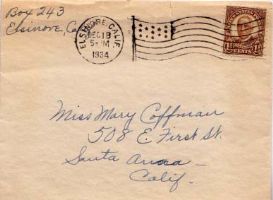 Box 243
Elsinore, Ca
ELSINORE, CALIF.
DEC 18
5-PM
1934
1½ CENTS 1½
Miss Mary Coffman
508 E First St.
Santa Anna
Calif.